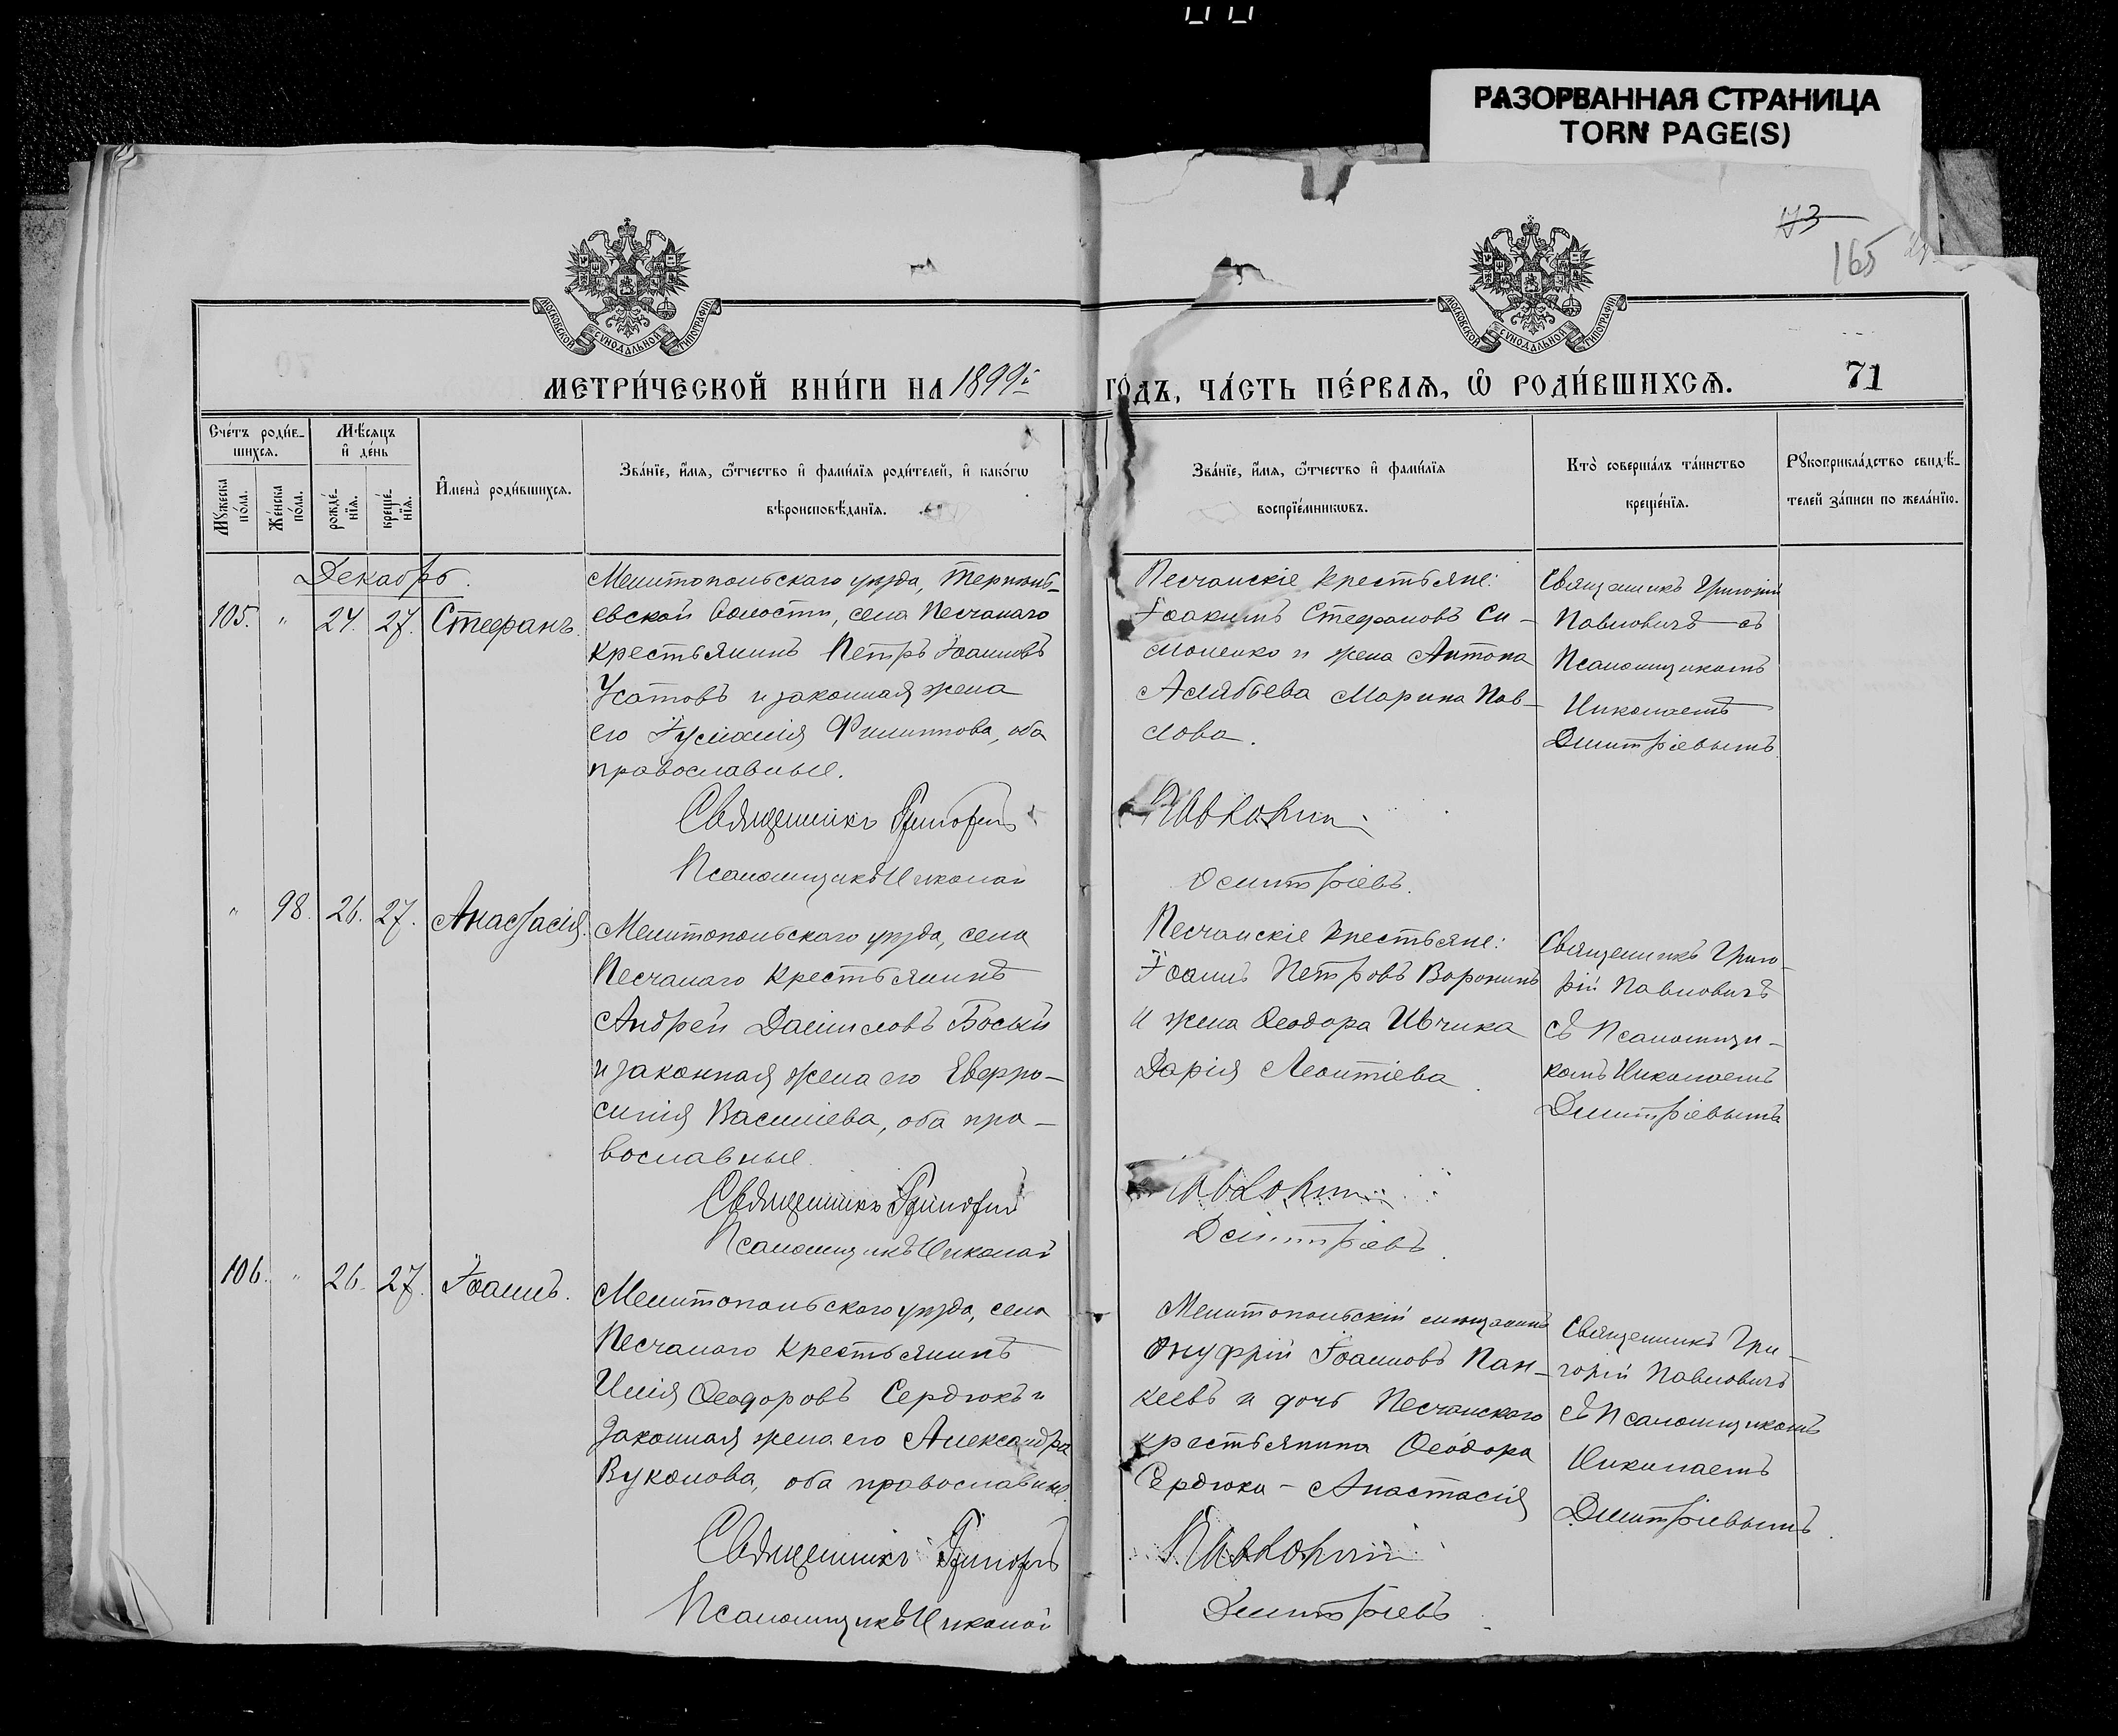 РАЗОРВАННАЯ СТРАНИЦА
TORN PAGE(S)
173
165
МОСКОВСКОЙ СѴНОДАЛЬНОЙ ТИПОГРАФІИ
МОСКОВСКОЙ СѴНОДАЛЬНОЙ ТИПОГРАФІИ
МЕТРИ́ЧЕСКОЙ КНИ́ГИ НА 1899й ГО́ДЪ, ЧА́СТЬ ПЕ́РВАѦ, Ѽ РОДИ́ВШИХСѦ. 71
Сче́тъ роди́в-
шихсѧ.
Мѣ́сѧцъ
и҆ де́нь
Мꙋ́жеска
по́ла.
Же́нска
по́ла.
рожде́-
нїѧ.
креще́-
нїѧ.
И҆мена̀ роди́вшихсѧ.
Зва́нїе, и҆́мѧ, ѻ҆́тчество и҆ фами́лїѧ роди́телей, и҆ како́гѡ
вѣроисповѣ́данїѧ.
Зва́нїе, и҆́мѧ, ѻ҆́тчество и҆ фами́лїѧ
воспрїе́мникѡвъ.
Кто̀ соверша́лъ та́инство
креще́нїѧ.
Рꙋкоприкла́дство свидѣ́-
телей за́писи по жела́нїю.
Декабрь.
105. " 24. 27. Стефанъ.
Мелитопольскаго уѣзда, Терпѣнь-
евской Волости, села Песчанаго
крестьянинъ Петръ Іоанновъ
Усатовъ и законная жена
его Іуліанія Филиппова, оба
православные.
Священникъ Григорій
Псаломщикъ Николай
Песчанскіе крестьяне:
Іоакимъ Стефановъ Си-
моненко и жена Антона
Алябьева Марина Пав-
лова.
Павловичъ
Дмитріевъ.
Священникъ Григорій
Павловичъ съ
Псаломщикомъ
Николаемъ
Дмитріевымъ
" 98. 26. 27. Анастасія.
Мелитопольскаго уѣзда, села
Песчанаго крестьянинъ
Андрей Даниловъ Босый
и законная жена его Евфро-
синія Василіева, оба пра-
вославные.
Священникъ Григорій
Псаломщикъ Николай
Песчанскіе крестьяне:
Іоаннъ Петровъ Воронинъ
и жена Ѳеодора Ивчика
Дарія Леонтіева.
Павловичъ
Дмитріевъ.
Священникъ Григо-
рій Павловичъ
съ Псаломщи-
комъ Николаемъ
Дмитріевымъ
106. " 26. 27. Іоаннъ.
Мелитопольскаго уѣзда, села
Песчанаго крестьянинъ
Илія Ѳеодоровъ Сердюкъ и
законная жена его Александра
Вуколова, оба православные.
Священникъ Григорій
Псаломщикъ Николай
Мелитопольскій мѣщанинъ
Онуфрій Іоанновъ Пан-
кеевъ и дочь Песчанскаго
крестьянина Ѳеодора
Сердюка - Анастасія
Павловичъ
Дмитріевъ
Священникъ Гри-
горій Павловичъ
съ Псаломщикомъ
Николаемъ
Дмитріевымъ.